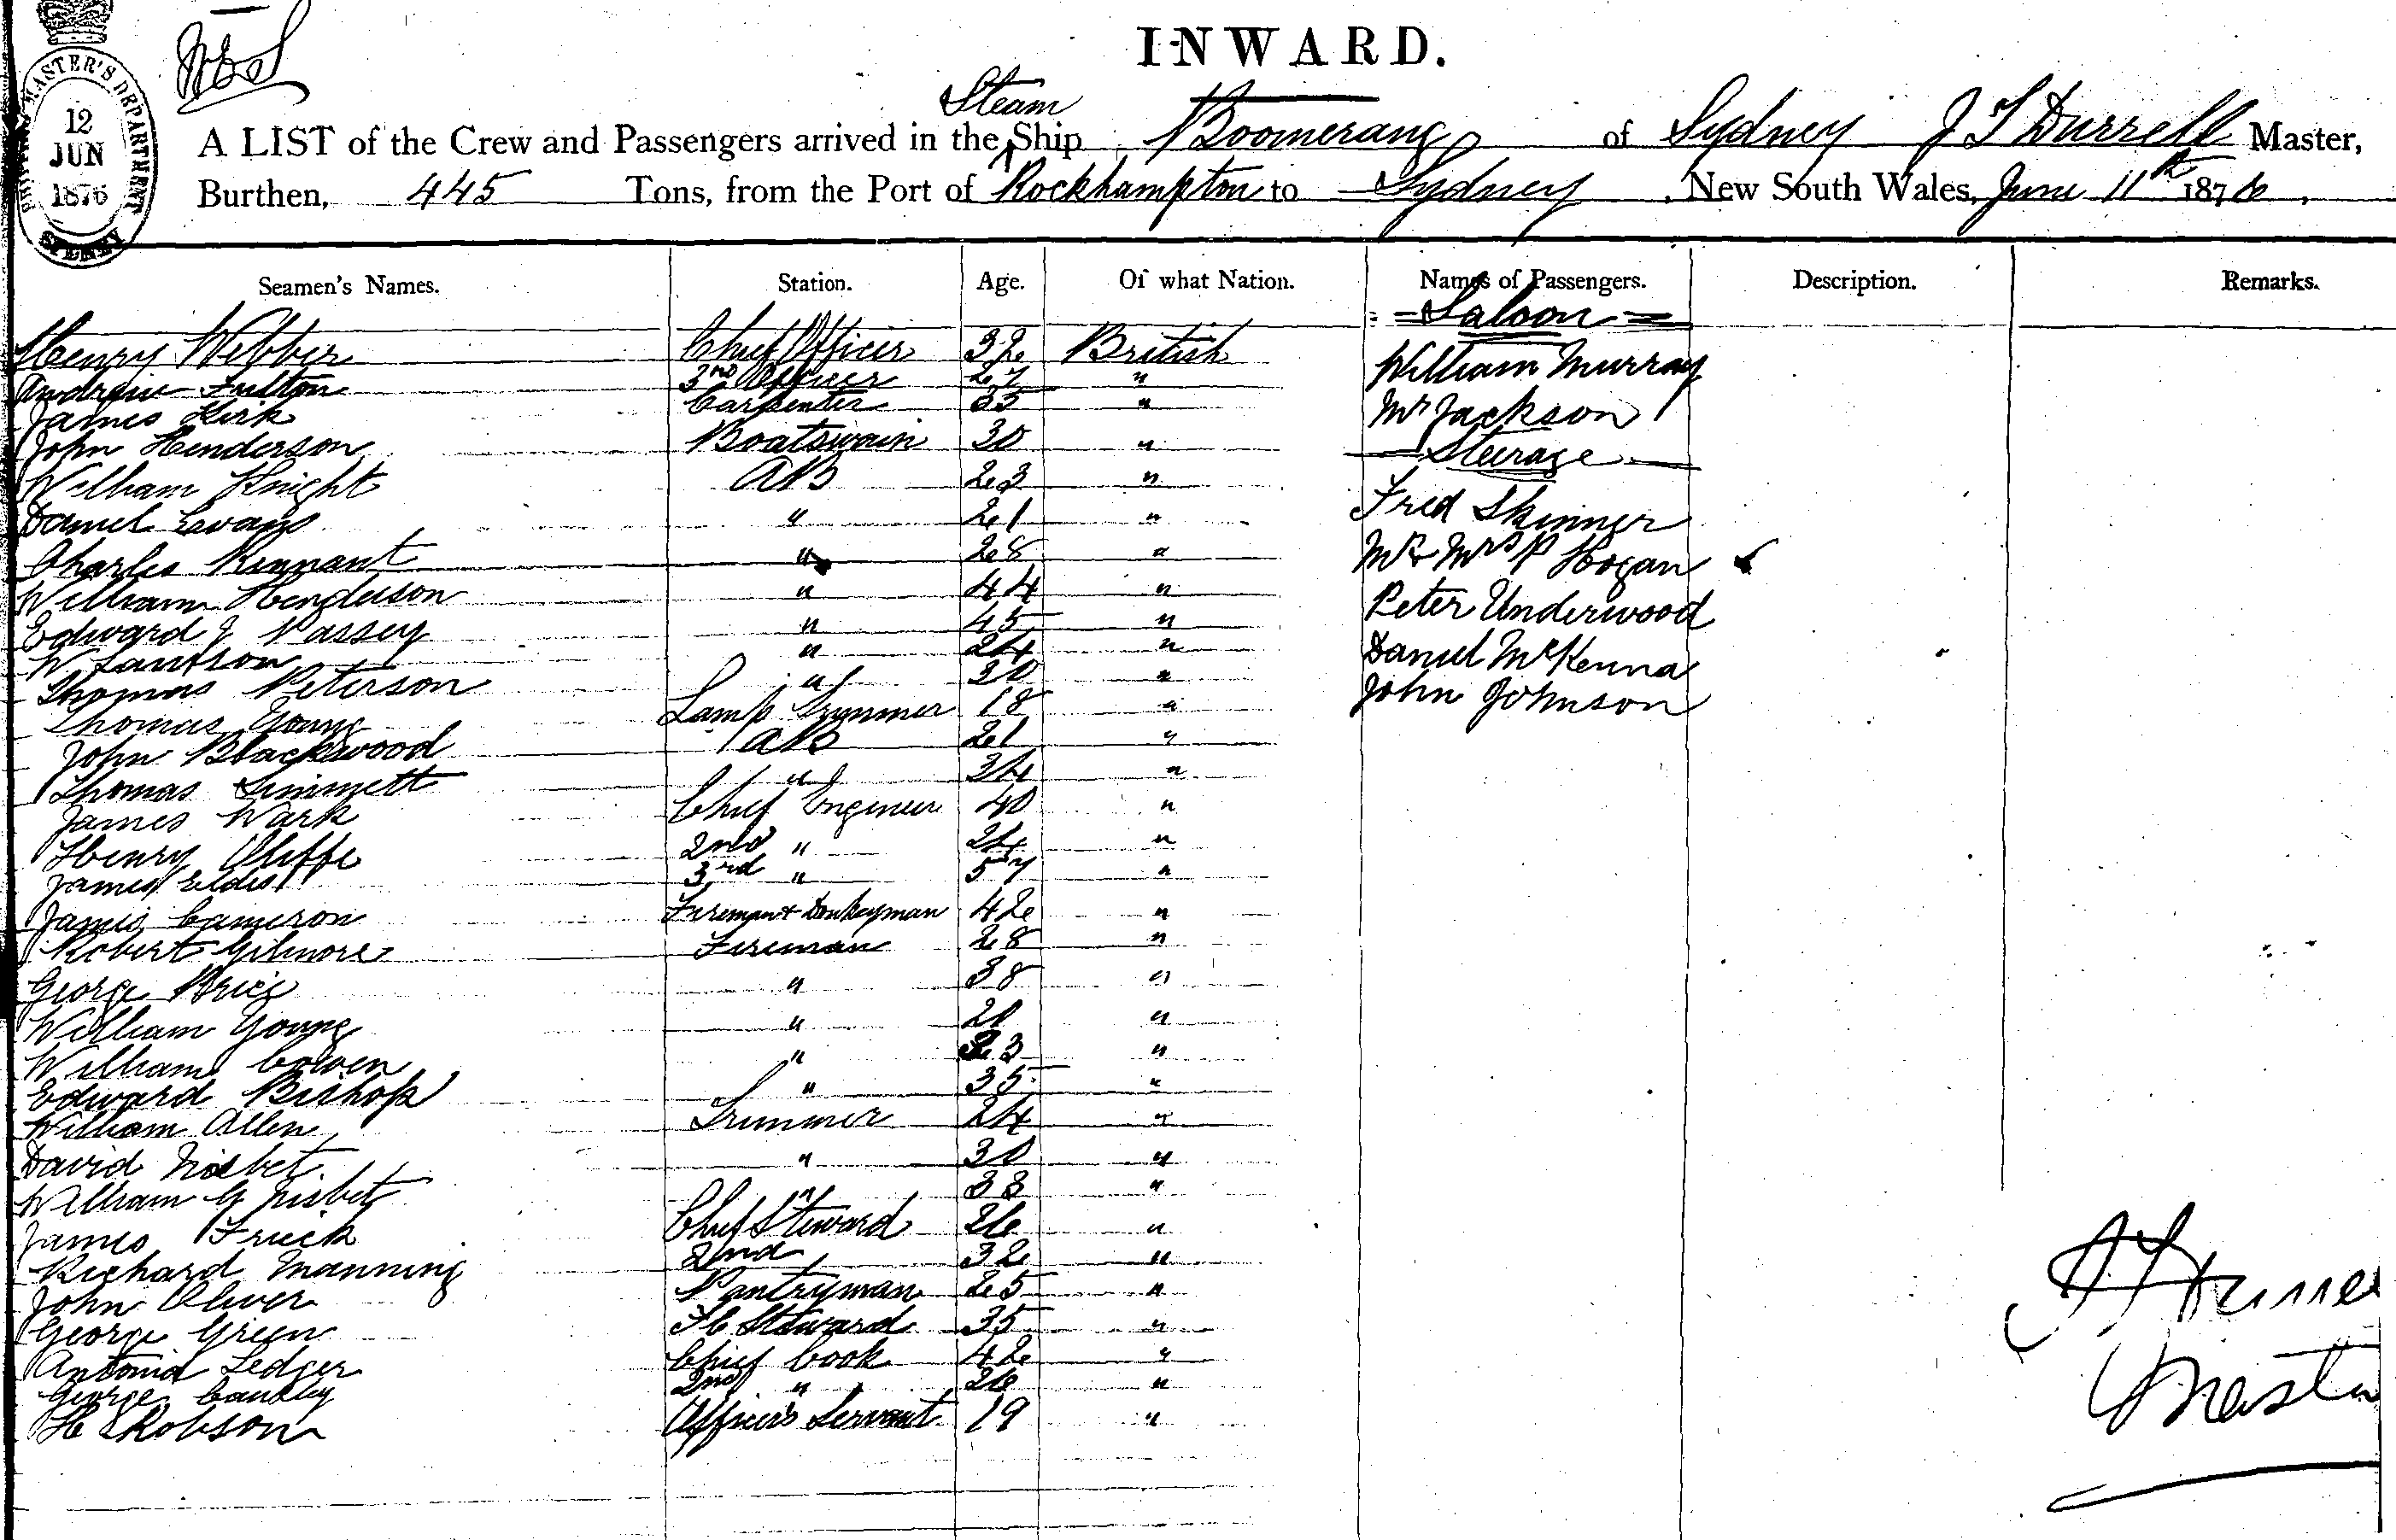 INWARD.
SHIPPING MASTER'S DEPARTMENT
12
JUN
1876
SYDNEY
Steam
A LIST of the Crew and Passengers arrived in the Ship Boomerang of Sydney J T Durrell Master,
Burthen, 445 Tons, from the Port of Rockhampton to Sydney, New South Wales, June 11th 1876.
Seamen's Names. Station. Age. Of what Nation. Names of Passengers. Description. Remarks.
Henry Webber Chief Officer 32 British
Andrew Fulton 2nd Officer 27 "
James Kirk Carpenter 35 "
John Henderson Boatswain 30 "
William Knight AB 23 "
Daniel Evans " 21 "
Charles Kennant " 28 "
William Henderson " 44 "
Edward J Passey " 45 "
W " 24 "
Thomas Peterson " 30 "
Thomas Young Lamp Trimmer 18 "
John Blackwood AB 21 "
Thomas Simmett " 34 "
James Wark Chief Engineer 40 "
Henry Cliffe 2nd " 24 "
James 3rd " 57 "
James Cameron Fireman & Donkeyman 42 "
Robert Gilmore Fireman 28 "
George Price " 38 "
William Young " "
William Cowen " 23 "
Edward Bishop " 35 "
William Allen Trimmer 24 "
David Nisbet " 30 "
William G Nisbet " 33 "
James Chief Steward 26 "
Richard Manning 2nd 32 "
John Oliver Pantryman 25 "
George Green F C Steward 35 "
Antonio Ledger Chief Cook 42 "
George 2nd " 26 "
H Robson Officers Servant 19 "
Saloon
William Murray
Mr Jackson
Steerage
Fred Skinner
Mr & Mrs P Hogan
Peter Underwood
Daniel McKenna
John Johnson